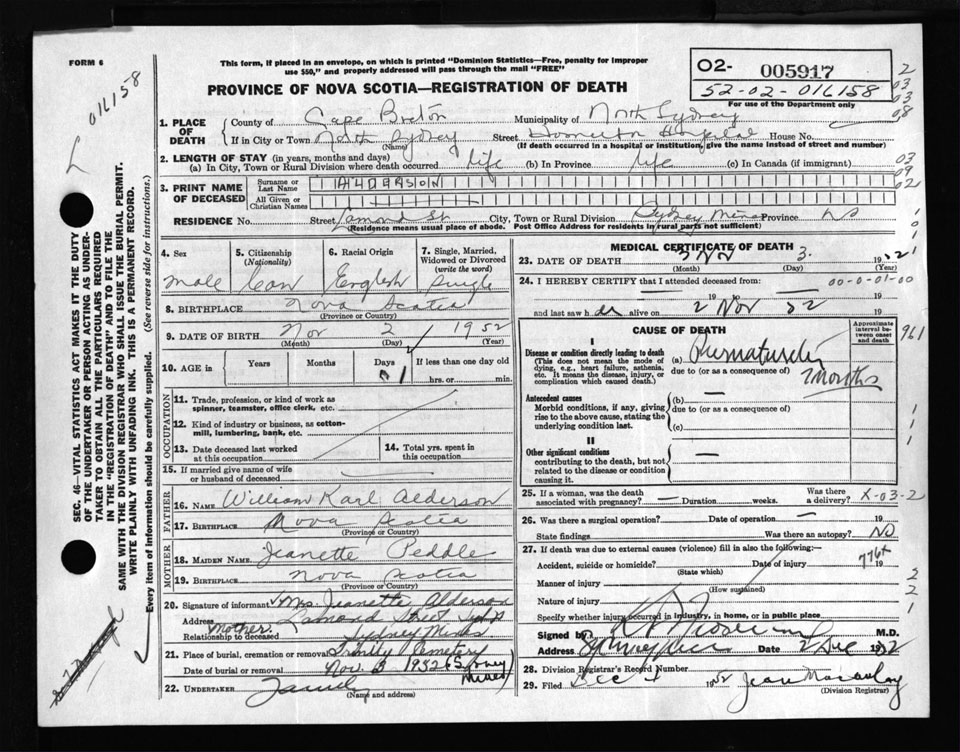 FORM 6
This form, if placed in an envelope, on which is printed "Dominion Statistics—Free, penalty for improper
use $50," and properly addressed will pass through the mail "FREE"
PROVINCE OF NOVA SCOTIA—REGISTRATION OF DEATH
02- 005917
52-02-016158
For use of the Department only
016158
1. PLACE OF DEATH
County of Cape Breton Municipality of North Sydney
If in City or Town North Sydney Street Hospital House No.
(Name) (If death occurred in a hospital or institution, give the name instead of street and number)
2. LENGTH OF STAY (in years, months and days)
(a) In City, Town or Rural Division where death occurred life (b) In Province life (c) In Canada (if immigrant)
3. PRINT NAME OF DECEASED
Surname or Last Name ALDERSON
All Given or Christian Names
RESIDENCE No. Street Lamond St City, Town or Rural Division Sydney Mines Province NS
(Residence means usual place of abode. Post Office Address for residents in rural parts not sufficient)
4. Sex Male
5. Citizenship (Nationality) Can
6. Racial Origin English
7. Single, Married, Widowed or Divorced (write the word) Single
8. BIRTHPLACE Nova Scotia
(Province or Country)
9. DATE OF BIRTH Nov 2 1952
(Month) (Day) (Year)
10. AGE in Years Months Days 1 If less than one day old
hrs. or min.
OCCUPATION
11. Trade, profession, or kind of work as
spinner, teamster, office clerk, etc.
12. Kind of industry or business, as cotton-
mill, lumbering, bank, etc.
13. Date deceased last worked
at this occupation
14. Total yrs. spent
in this occupation
15. If married give name of wife
or husband of deceased
FATHER
16. NAME William Karl Alderson
17. BIRTHPLACE Nova Scotia
(Province or Country)
MOTHER
18. MAIDEN NAME Jeanette Peddle
19. BIRTHPLACE Nova Scotia
(Province or Country)
20. Signature of informant Mrs. Jeanette Alderson
Address Lamond Street
Relationship to deceased Mother Sydney Mines
21. Place of burial, cremation or removal Trinity Cemetery
Date of burial or removal Nov. 3 1952 (Sydney Mines)
22. UNDERTAKER
(Name and address)
MEDICAL CERTIFICATE OF DEATH
23. DATE OF DEATH Nov 3 1952
(Month) (Day) (Year)
24. I HEREBY CERTIFY that I attended deceased from: 00-0-01-00
19 to 19
and last saw h alive on 2 Nov 52
CAUSE OF DEATH
Approximate interval between onset and death
I
Disease or condition directly leading to death
(This does not mean the mode of
dying, e.g., heart failure, asthenia,
etc. It means the disease, injury, or
complication which caused death.)
(a) Prematurely
due to (or as a consequence of) 7 months
Antecedent causes
Morbid conditions, if any, giving
rise to the above cause, stating the
underlying condition last.
(b) —
due to (or as a consequence of)
(c)
II
Other significant conditions
contributing to the death, but not
related to the disease or condition
causing it.
—
25. If a woman, was the death
associated with pregnancy? — Duration weeks. Was there a delivery? X-03-2
26. Was there a surgical operation? — Date of operation — 19
State findings Was there an autopsy? No
27. If death was due to external causes (violence) fill in also the following:—
Accident, suicide or homicide? Date of injury 19
(State which)
776X
Manner of injury
(How sustained)
Nature of injury
Specify whether injury occurred in industry, in home, or in public place
Signed by M.D.
Address Date 2 Dec 1952
28. Division Registrar's Record Number
29. Filed Dec 1952 Jean Macaulay
(Division Registrar)
SEC. 46—VITAL STATISTICS ACT MAKES IT THE DUTY
OF THE UNDERTAKER OR PERSON ACTING AS UNDER-
TAKER TO OBTAIN ALL THE PARTICULARS REQUIRED
IN THE "REGISTRATION OF DEATH" AND TO FILE THE
SAME WITH THE DIVISION REGISTRAR WHO SHALL ISSUE THE BURIAL PERMIT.
WRITE PLAINLY WITH UNFADING INK. THIS IS A PERMANENT RECORD.
Every item of information should be carefully supplied. (See reverse side for instructions.)
961